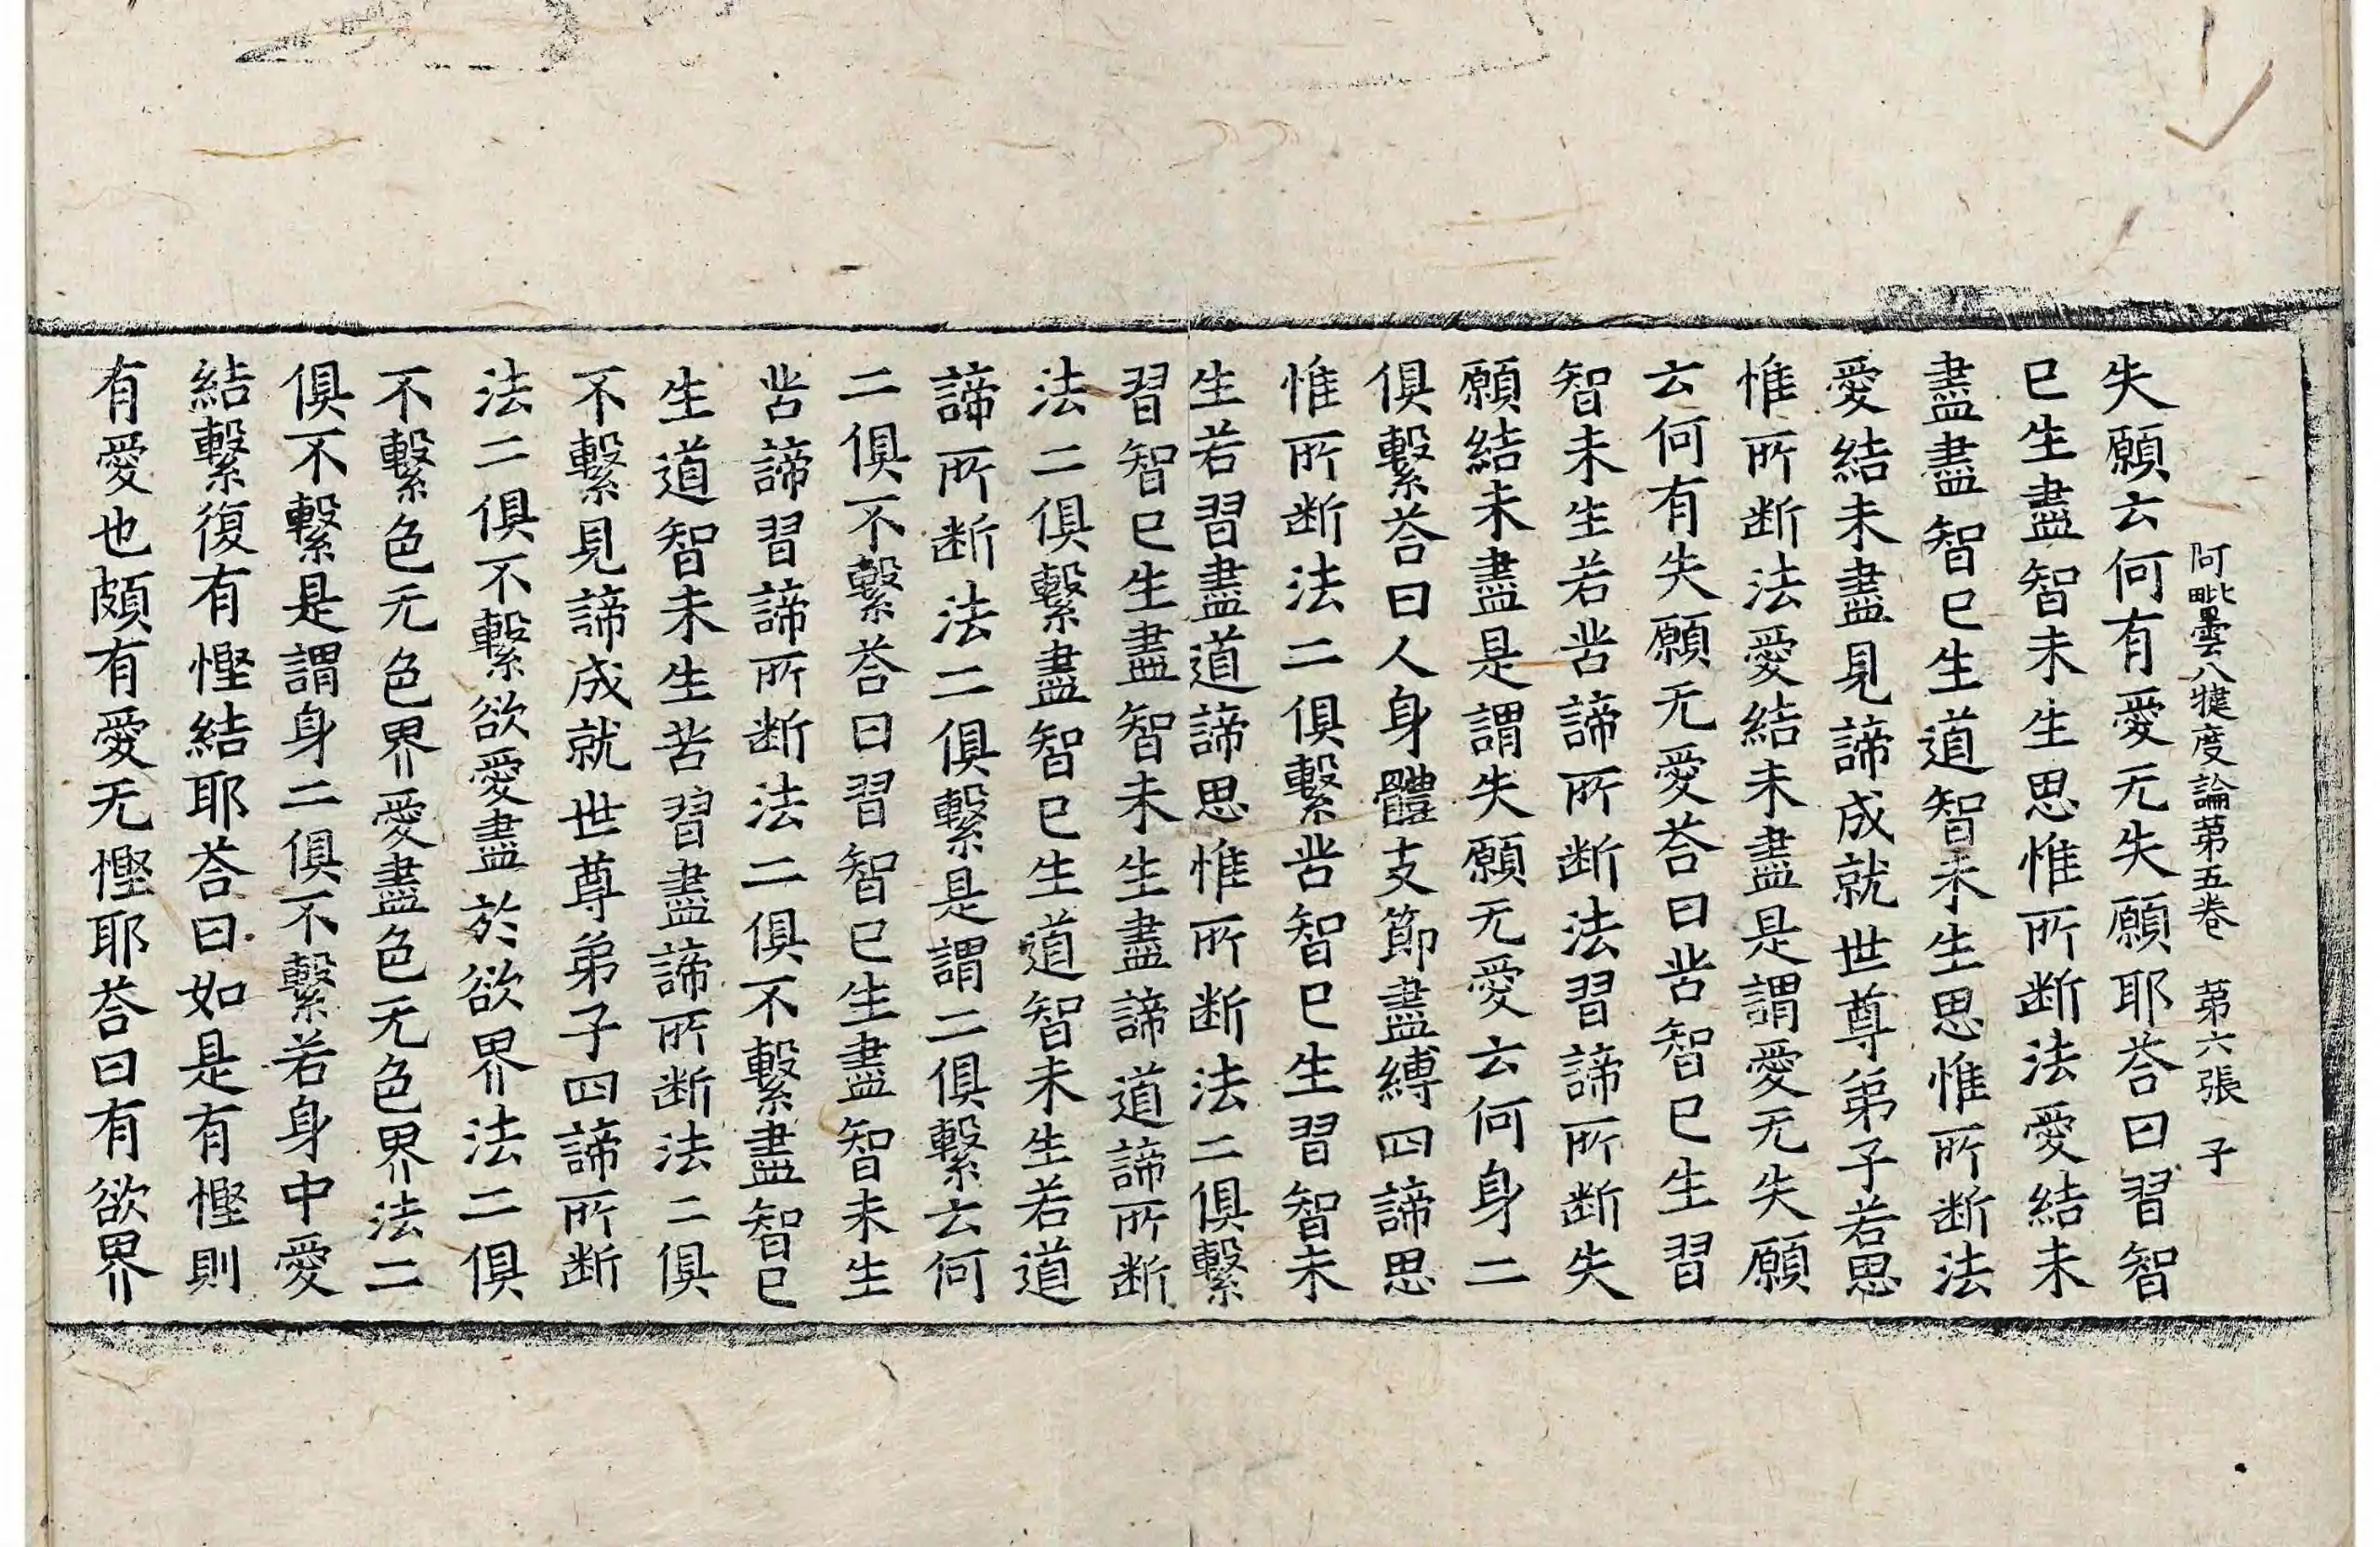 阿毗曇八犍度論苐五卷　苐六張　子
失願云何有愛无失願耶荅曰習智
已生盡智未生思惟所断法愛結未
盡盡智已生道智未生思惟所断法
愛結未盡見諦成就世尊弟子若思
惟所断法愛結未盡是謂愛无失願
云何有失願无愛荅曰苦智已生習
智未生若苦諦所断法習諦所断失
願結未盡是謂失願无愛云何身二
俱繫荅曰人身體支節盡縛四諦思
惟所断法二俱繫苦智已生習智未
生若習盡道諦思惟所断法二俱繫
習智已生盡智未生盡諦道諦所断
法二俱繫盡智已生道智未生若道
諦所断法二俱繫是謂二俱繫云何
二俱不繫荅曰習智已生盡智未生
苦諦習諦所断法二俱不繫盡智已
生道智未生苦習盡諦所断法二俱
不繫見諦成就世尊弟子四諦所断
法二俱不繫欲愛盡於欲界法二俱
不繫色无色界愛盡色无色界法二
俱不繫是謂身二俱不繫若身中愛
結繫復有慳結耶荅曰如是有慳則
有愛也頗有愛无慳耶荅曰有欲界